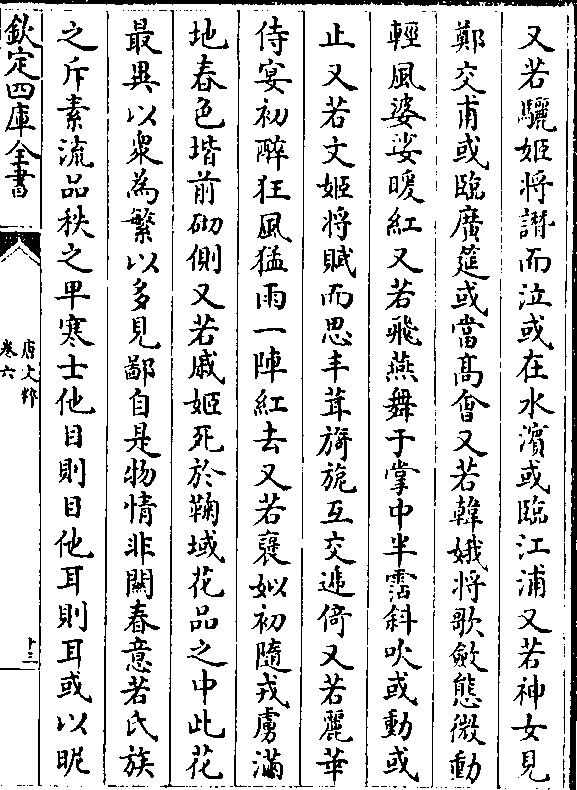 又若驪姬將譖而泣或在水濱或臨江浦又若神女見
鄭交甫或臨廣筵或當髙會又若韓娥將歌斂態微動
輕風婆娑暖紅又若飛燕舞于掌中半霑斜吹或動或
止又若文姬將賦而思丰茸旖旎互交遞倚又若麗華
侍宴初醉狂風猛雨一陣紅去又若褒姒初隨戎虜滿
地春色堦前砌側又若戚姬死於鞠域花品之中此花
最異以衆為繁以多見鄙自是物情非闗春意若氏族
之斥素流品秩之卑寒士他目則目他耳則耳或以昵
欽定四庫全書
唐文粹
卷六
十三